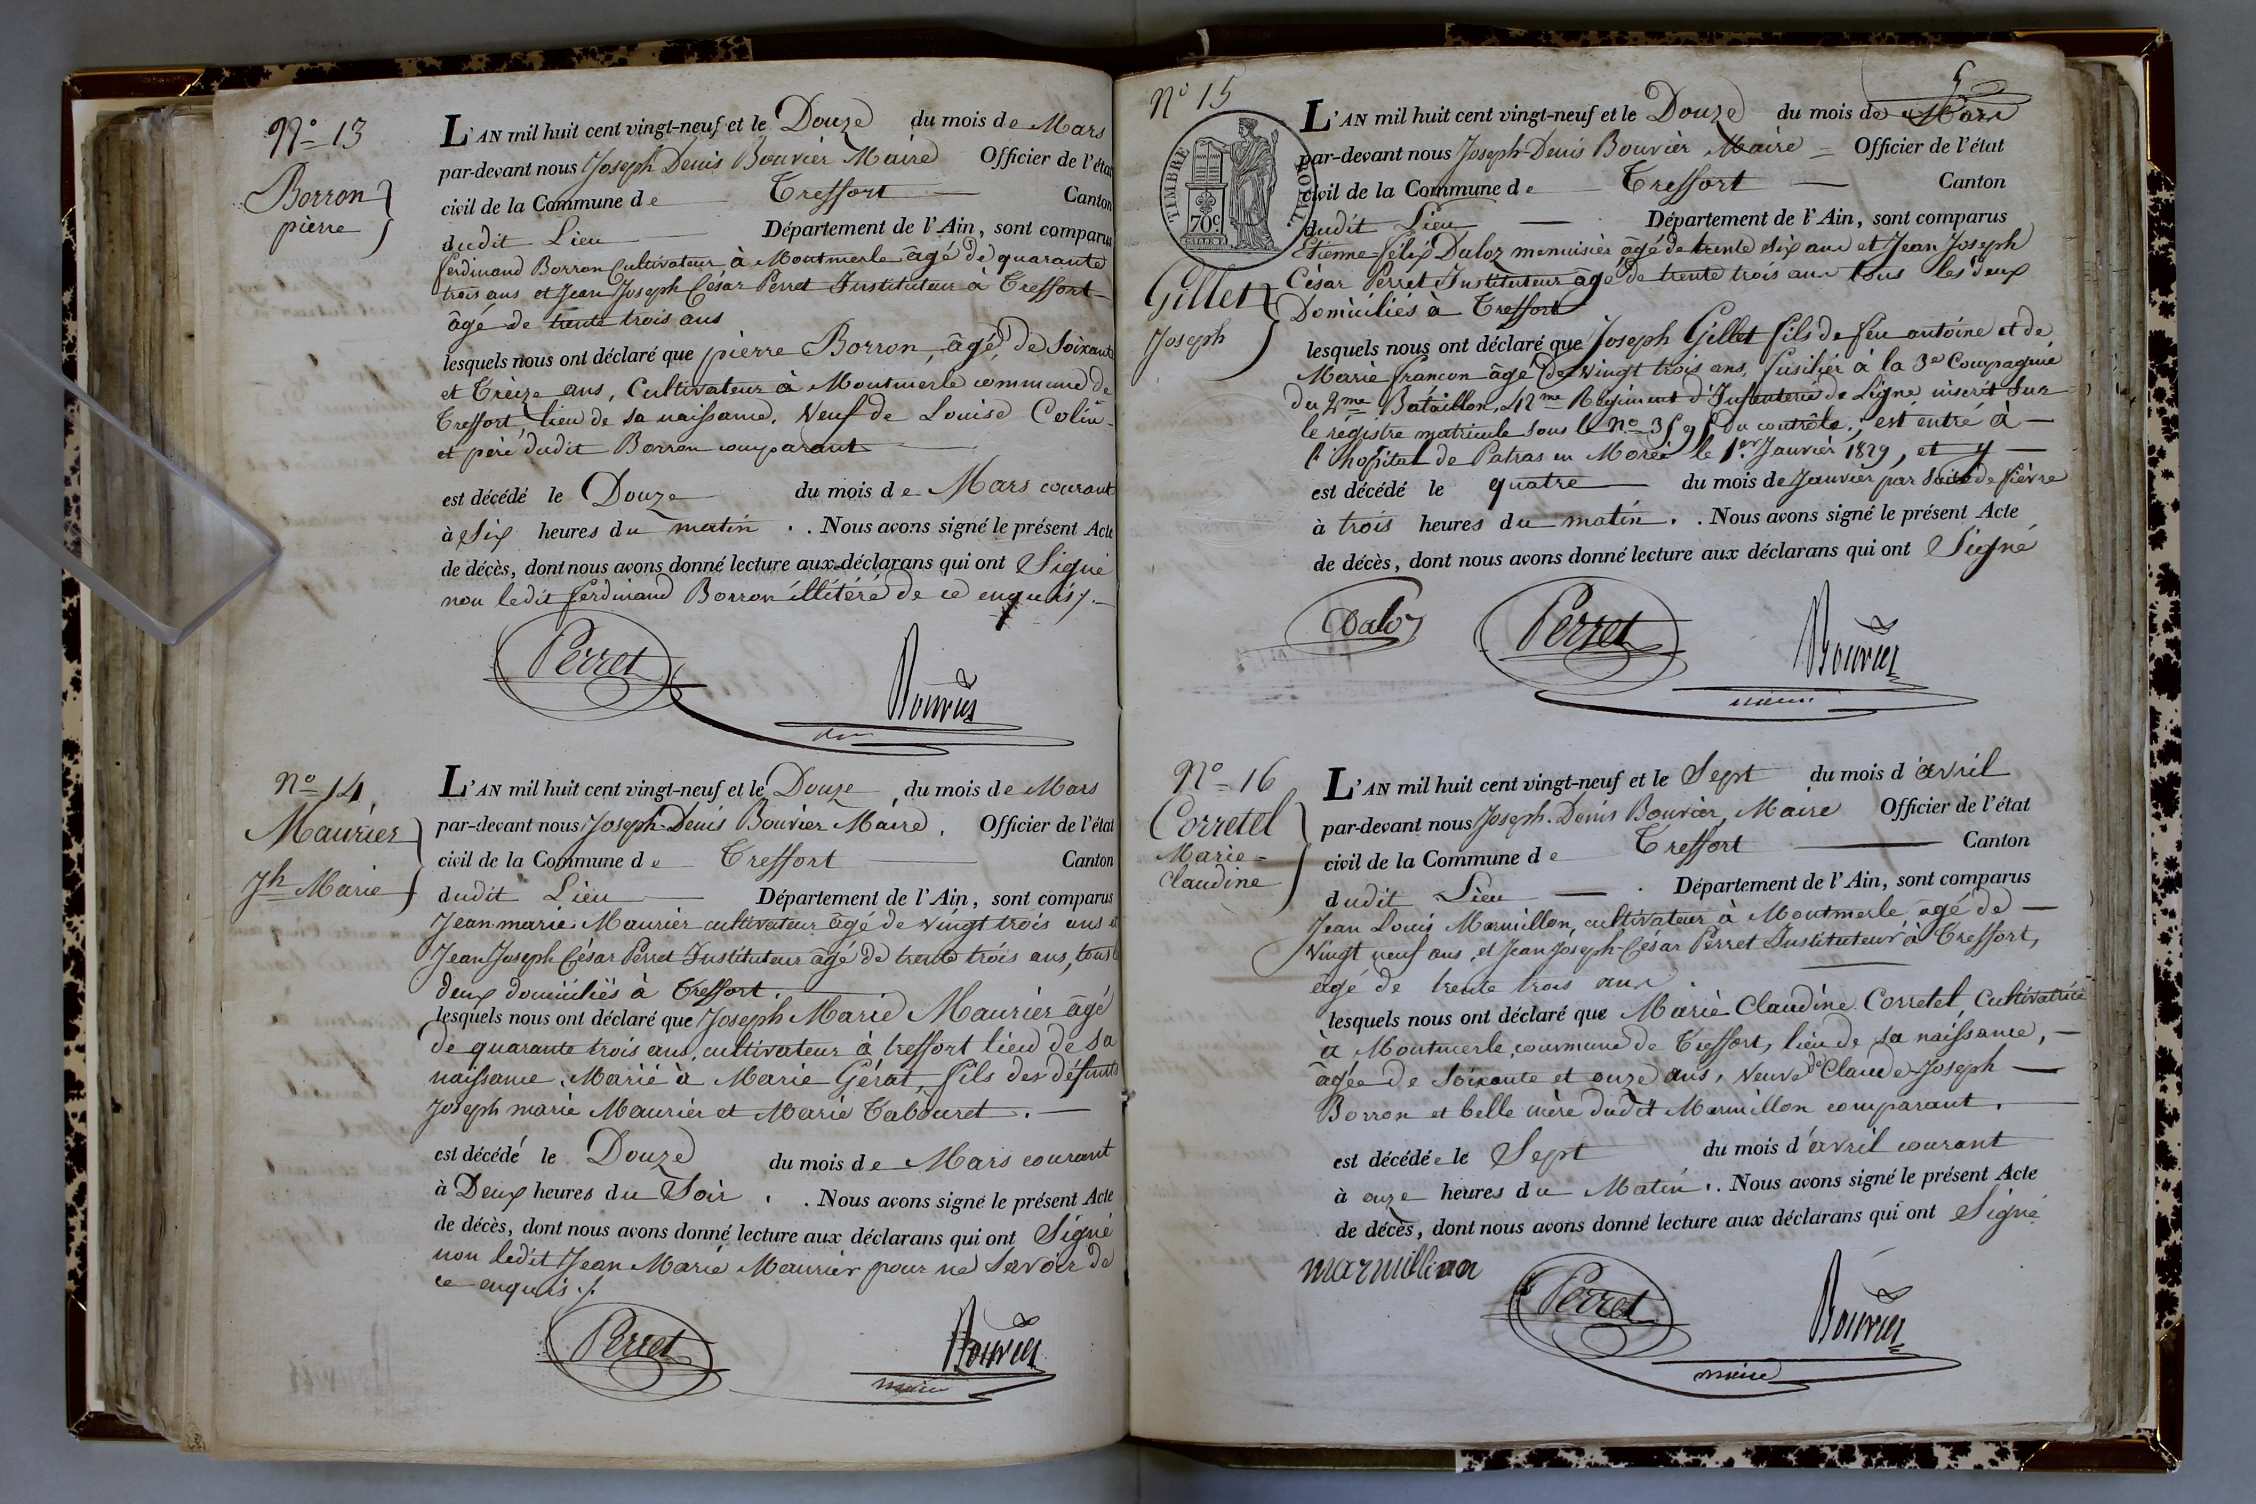 N° 13
Borron
pierre
L'AN mil huit cent vingt-neuf et le Douze du mois de Mars
par-devant nous Joseph Denis Bouvier Maire Officier de l'état
civil de la Commune de Treffort Canton
dudit Lieu Département de l'Ain, sont comparus
ferdinand Borron Cultivateur à Montmerle âgé de quarante
trois ans et Jean Joseph César Perret Instituteur à Treffort
âgé de trente trois ans
lesquels nous ont déclaré que pierre Borron, âgé de Soixante
et Treize ans, Cultivateur à Montmerle commune de
Treffort, lieu de sa naissance, Veuf de Louise Colin
et père dudit Borron comparant
est décédé le Douze du mois de Mars courant
à Six heures du matin. . Nous avons signé le présent Acte
de décès, dont nous avons donné lecture aux déclarans qui ont Signé
non ledit ferdinand Borron illitéré de ce enquis ./.
Perret
Bouvier
N° 14
Maurier
Jh Marie
L'AN mil huit cent vingt-neuf et le Douze du mois de Mars
par-devant nous Joseph Denis Bouvier Maire, Officier de l'état
civil de la Commune de Treffort Canton
dudit Lieu Département de l'Ain, sont comparus
Jean marie Maurier cultivateur âgé de vingt trois ans et
Jean Joseph César Perret Instituteur âgé de trente trois ans, tous
deux domiciliés à Treffort.
lesquels nous ont déclaré que Joseph Marie Maurier âgé
de quarante trois ans, cultivateur à treffort lieu de sa
naissance, Marié à Marie Gérat, fils des défunts
Joseph marie Maurier et Marie Tabouret.
est décédé le Douze du mois de Mars courant
à Deux heures du Soir . . Nous avons signé le présent Acte
de décès, dont nous avons donné lecture aux déclarans qui ont Signé
non ledit Jean Marie Maurier pour ne Savoir de
ce enquis ./.
Perret
Bouvier
maire
5
N° 15
TIMBRE ROYAL
70c
Gillet
Joseph
L'AN mil huit cent vingt-neuf et le Douze du mois de Mars
par-devant nous Joseph Denis Bouvier Maire Officier de l'état
civil de la Commune de Treffort Canton
dudit Lieu Département de l'Ain, sont comparus
Etienne félix Daloz menuisier âgé de trente six ans et Jean Joseph
César Perret Instituteur âgé de trente trois ans tous les deux
Domiciliés à Treffort
lesquels nous ont déclaré que Joseph Gillet fils de feu antoine et de
Marie francon âgé de vingt trois ans, fusilier à la 3e Compagnie
du 2me Bataillon, 42me Régiment d'Infanterie de Ligne inscrit Sur
le registre matricule sous le N° 3595 du contrôle, est entré à
l'hopital de Patras en Morée le 1er Janvier 1829, et y
est décédé le quatre du mois de Janvier par suite de fièvre
à trois heures du matin. . Nous avons signé le présent Acte
de décès, dont nous avons donné lecture aux déclarans qui ont Signé
Daloz
Perret
Bouvier
maire
N° 16
Corretel
Marie-
Claudine
L'AN mil huit cent vingt-neuf et le Sept du mois d'avril
par-devant nous Joseph Denis Bouvier, Maire Officier de l'état
civil de la Commune de Treffort Canton
dudit Lieu Département de l'Ain, sont comparus
Jean Louis Marmillon, cultivateur à Montmerle, âgé de
Vingt neuf ans, et Jean Joseph César Perret Instituteur à Treffort,
âgé de trente trois ans.
lesquels nous ont déclaré que Marie Claudine Corretel, Cultivatrice
à Montmerle, commune de Treffort, lieu de sa naissance,
âgée de Soixante et onze ans, Veuve de Claude Joseph
Borron et belle mère dudit Marmillon comparant.
est décédée le Sept du mois d'avril courant
à onze heures du Matin. . Nous avons signé le présent Acte
de décès, dont nous avons donné lecture aux déclarans qui ont Signé
marmillion
Perret
Bouvier
maire